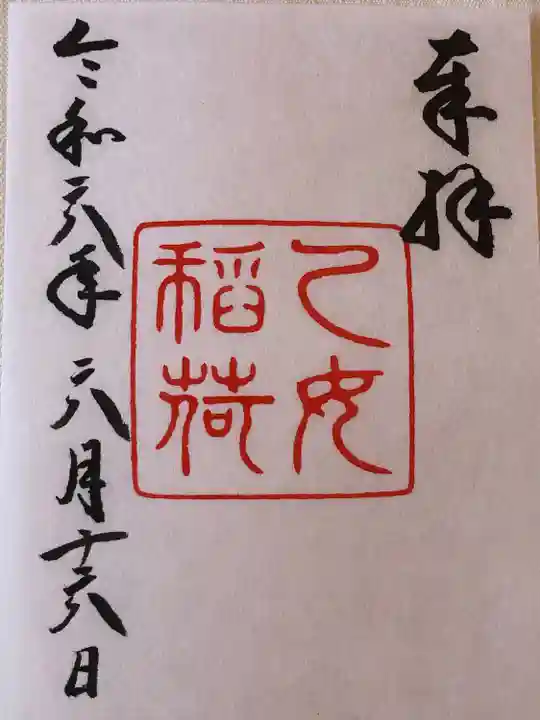 奉拝
乙女
稲荷
令和六年六月十六日